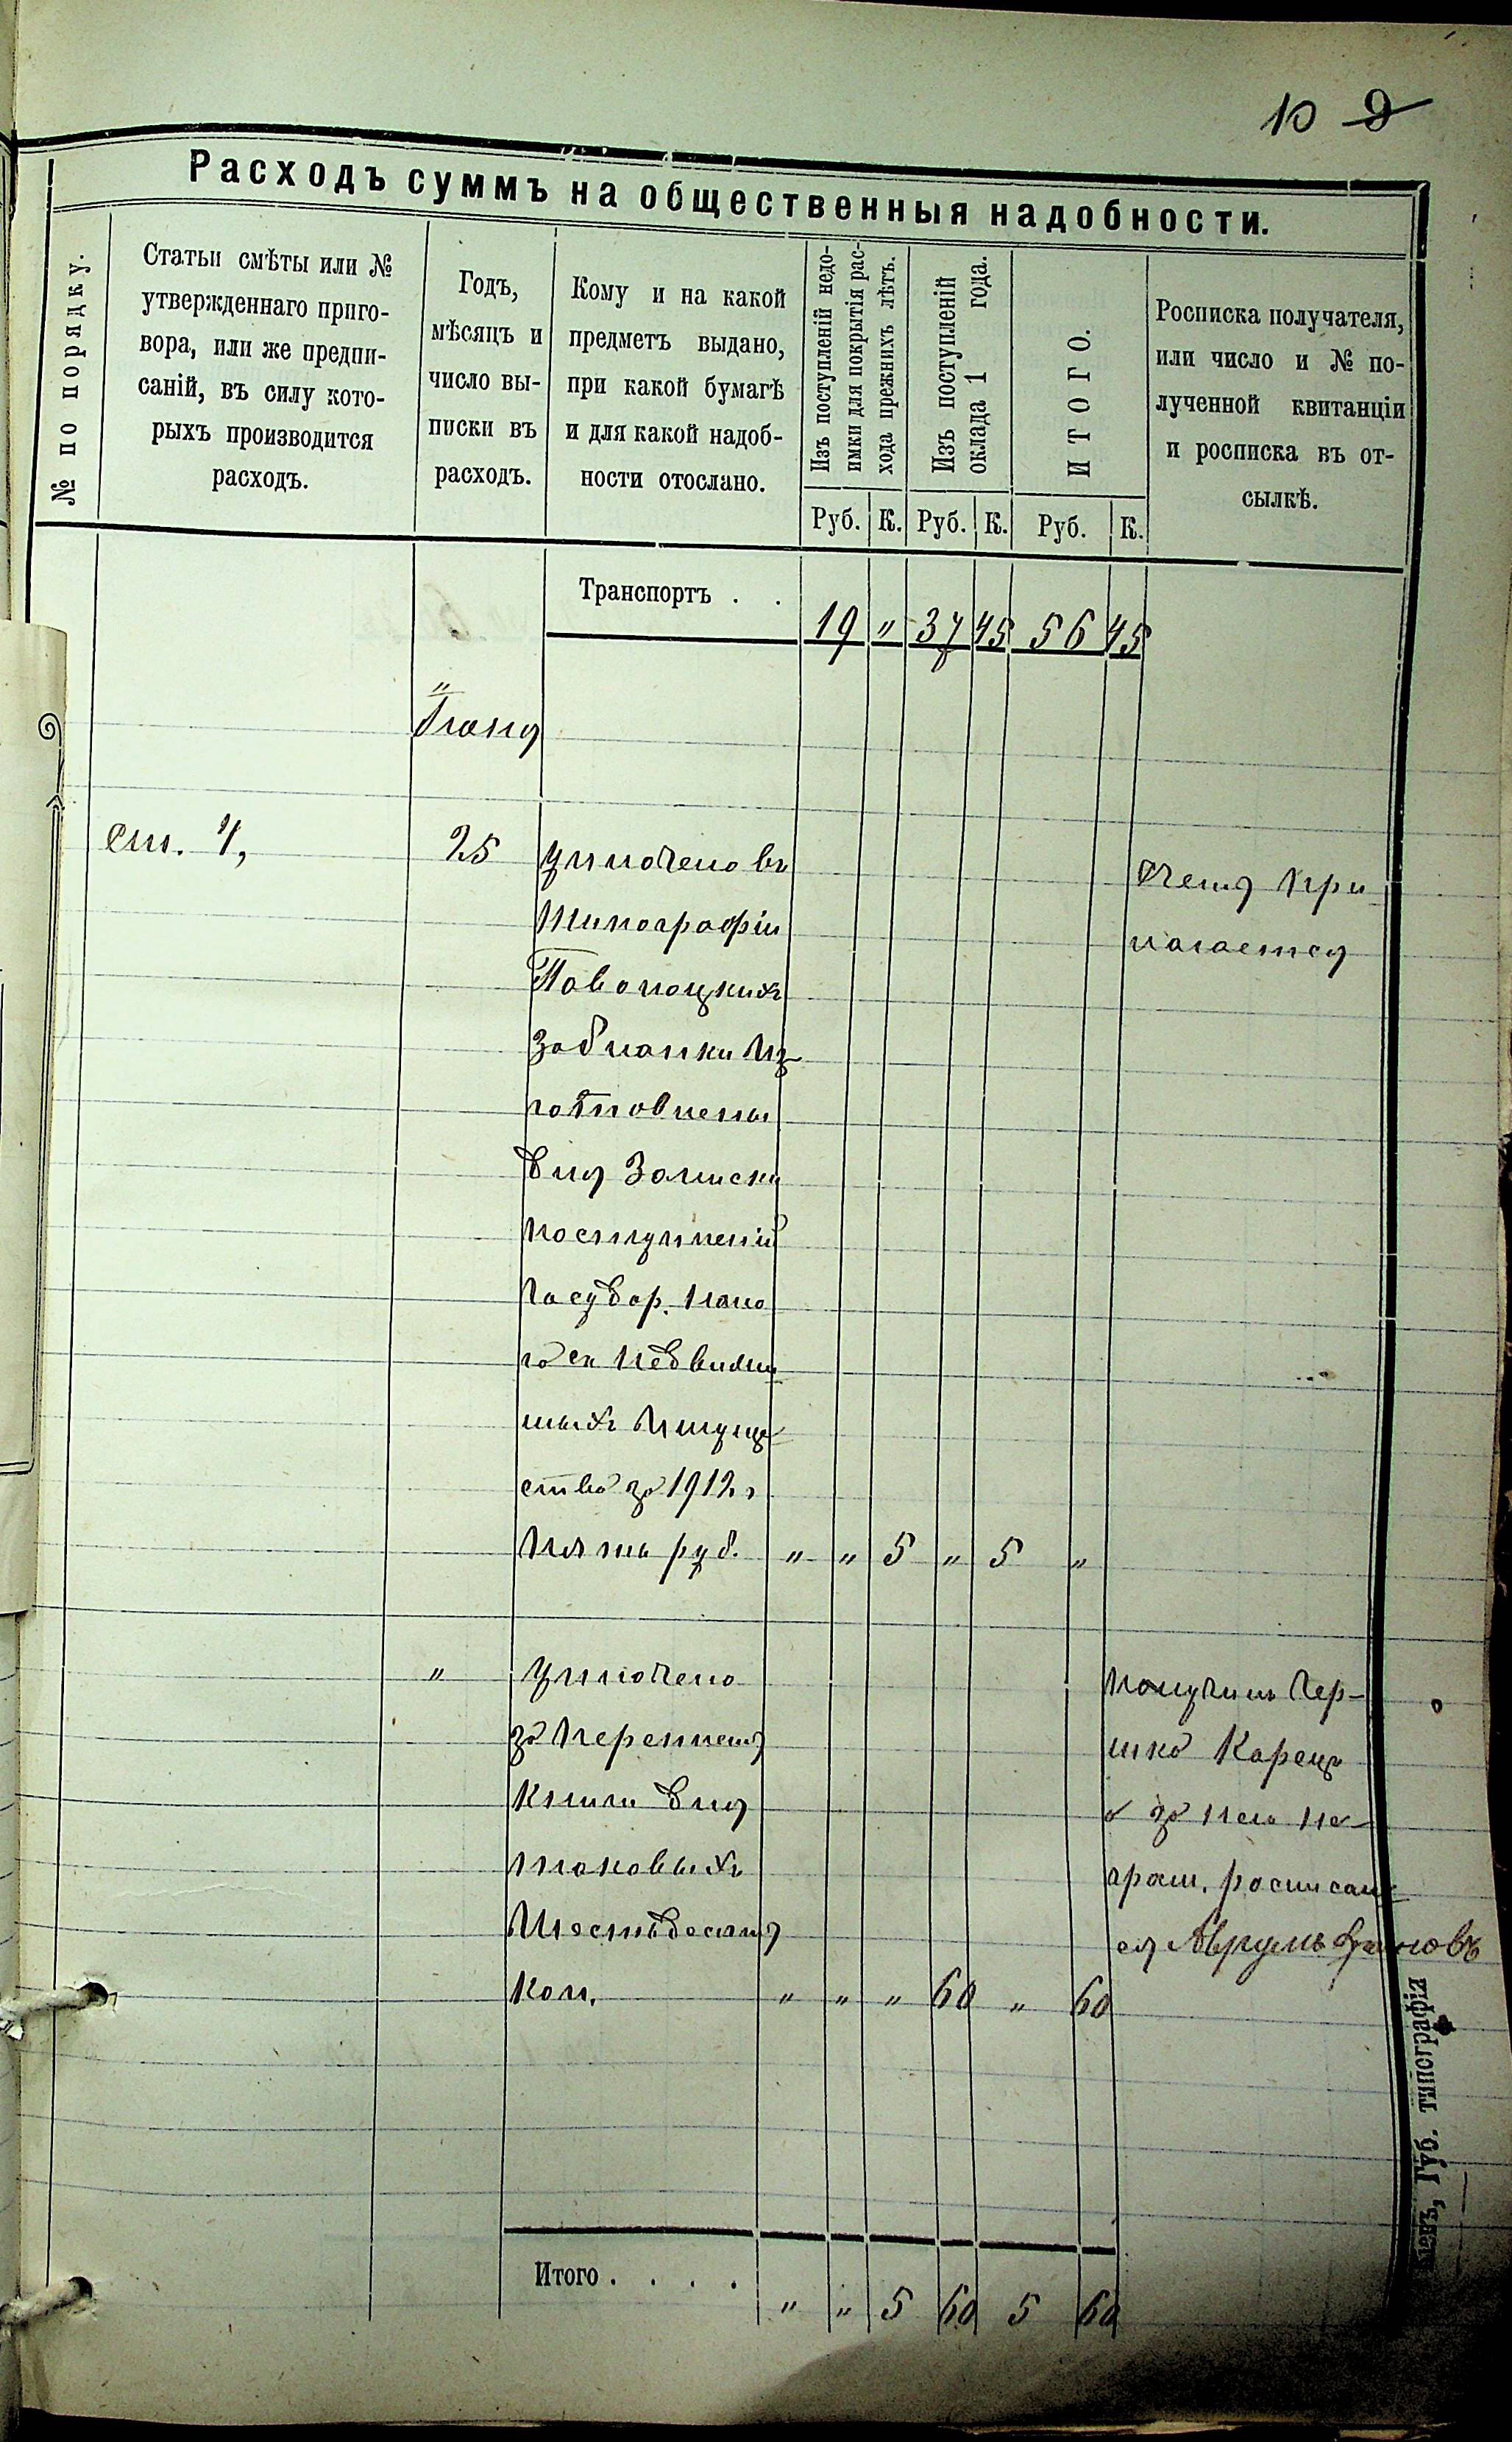 10 9
Расходъ суммъ на общественныя надобности.
№ по порядку.
Статьи смѣты или №
утвержденнаго приго-
вора, или же предпи-
саній, въ силу кото-
рыхъ производится
расходъ.
Годъ,
мѣсяцъ и
число вы-
писки въ
расходъ.
Кому и на какой
предметъ выдано,
при какой бумагѣ
и для какой надоб-
ности отослано.
Изъ поступленій недо-
имки для покрытія рас-
хода прежнихъ лѣтъ.
Изъ поступленій
оклада 1 года.
ИТОГО.
Росписка получателя,
или число и № по-
лученной квитанціи
и росписка въ от-
сылкѣ.
Руб. К. Руб. К. Руб. К.
Транспортъ . . 19 " 37 45 56 45
"
ст. 4, 25 Уплочено въ
типографіи
Паволоцкихъ
за бланки из
готовлены
для записки
поступленій
Государ. нало
га съ недвижи
мыхъ имуще
ства за 1912 г
пять руб. " " 5 " 5 "
Счетъ при
лагается
" Уплочено
за переплетъ
книги для
таковыхъ
Шестьдесятъ
коп. " " " 60 " 60
Получилъ Гер-
шко Карец
а за него не
грам. росписал
ся
Итого . . . . " " 5 60 5 60
Губ. типографія